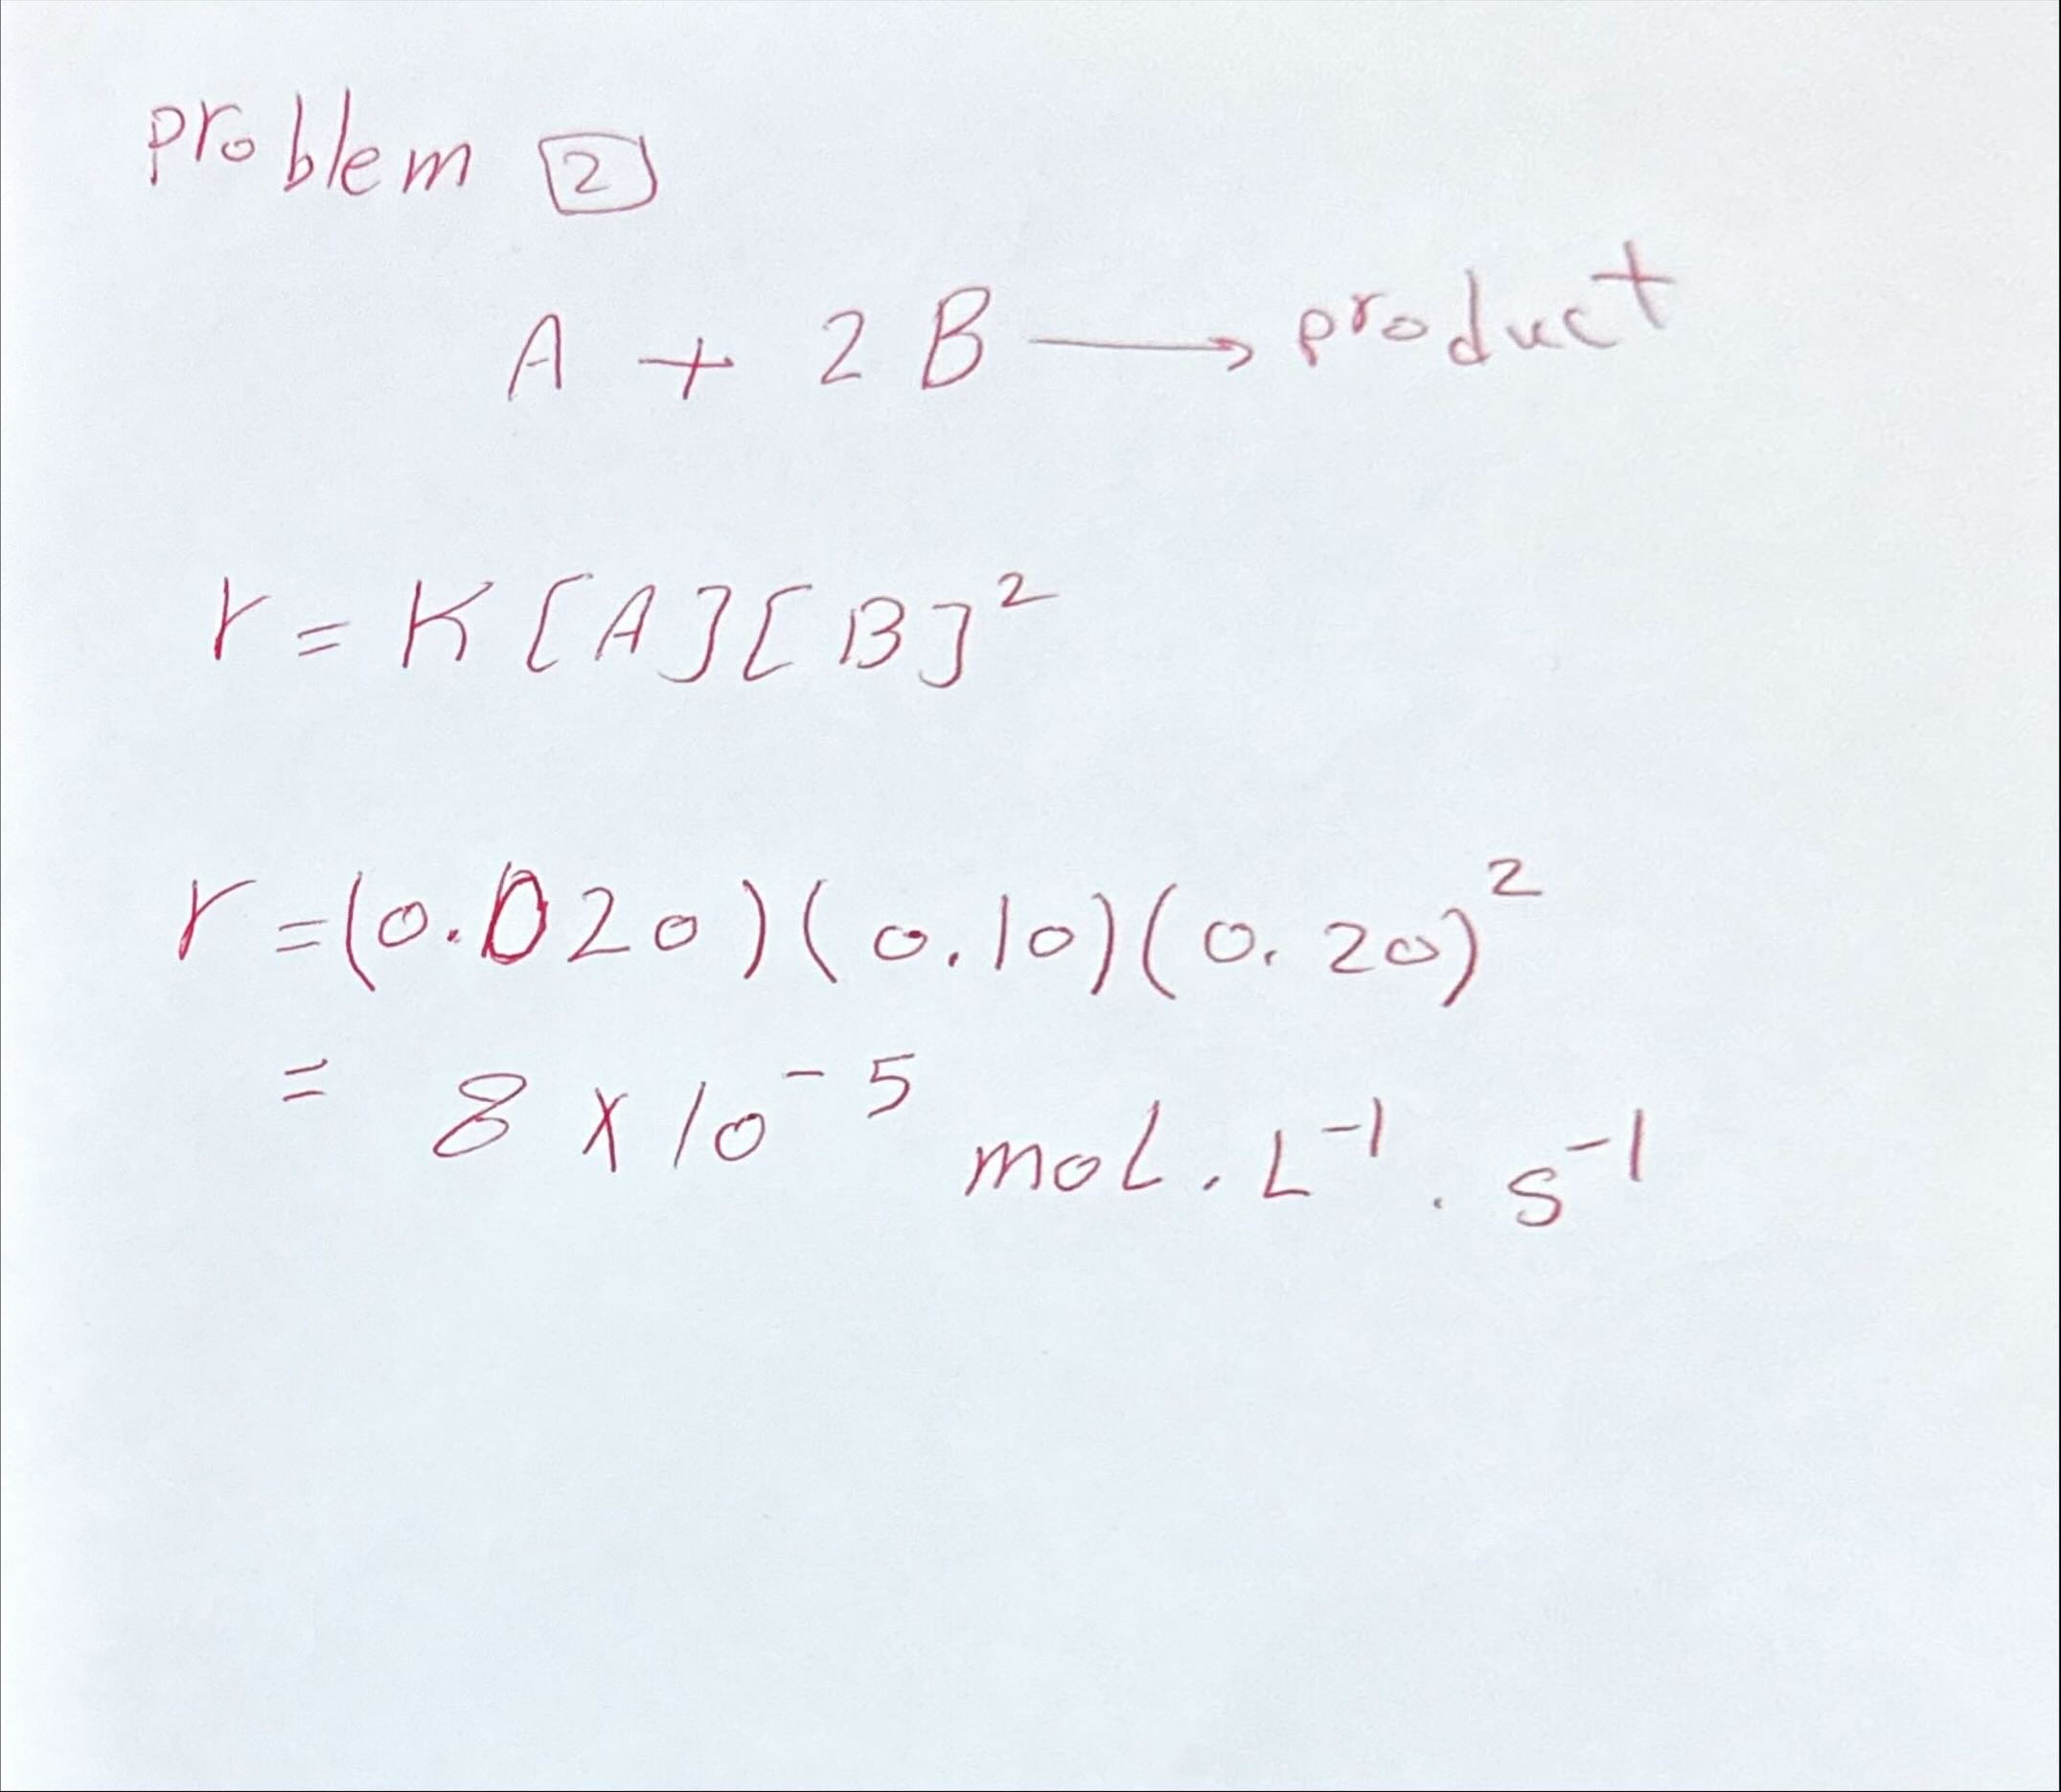 problem 2
A + 2 B → product
r = K [A][B]²
r = (0.020)(0.10)(0.20)²
= 8 x 10⁻⁵ mol . L⁻¹ . s⁻¹